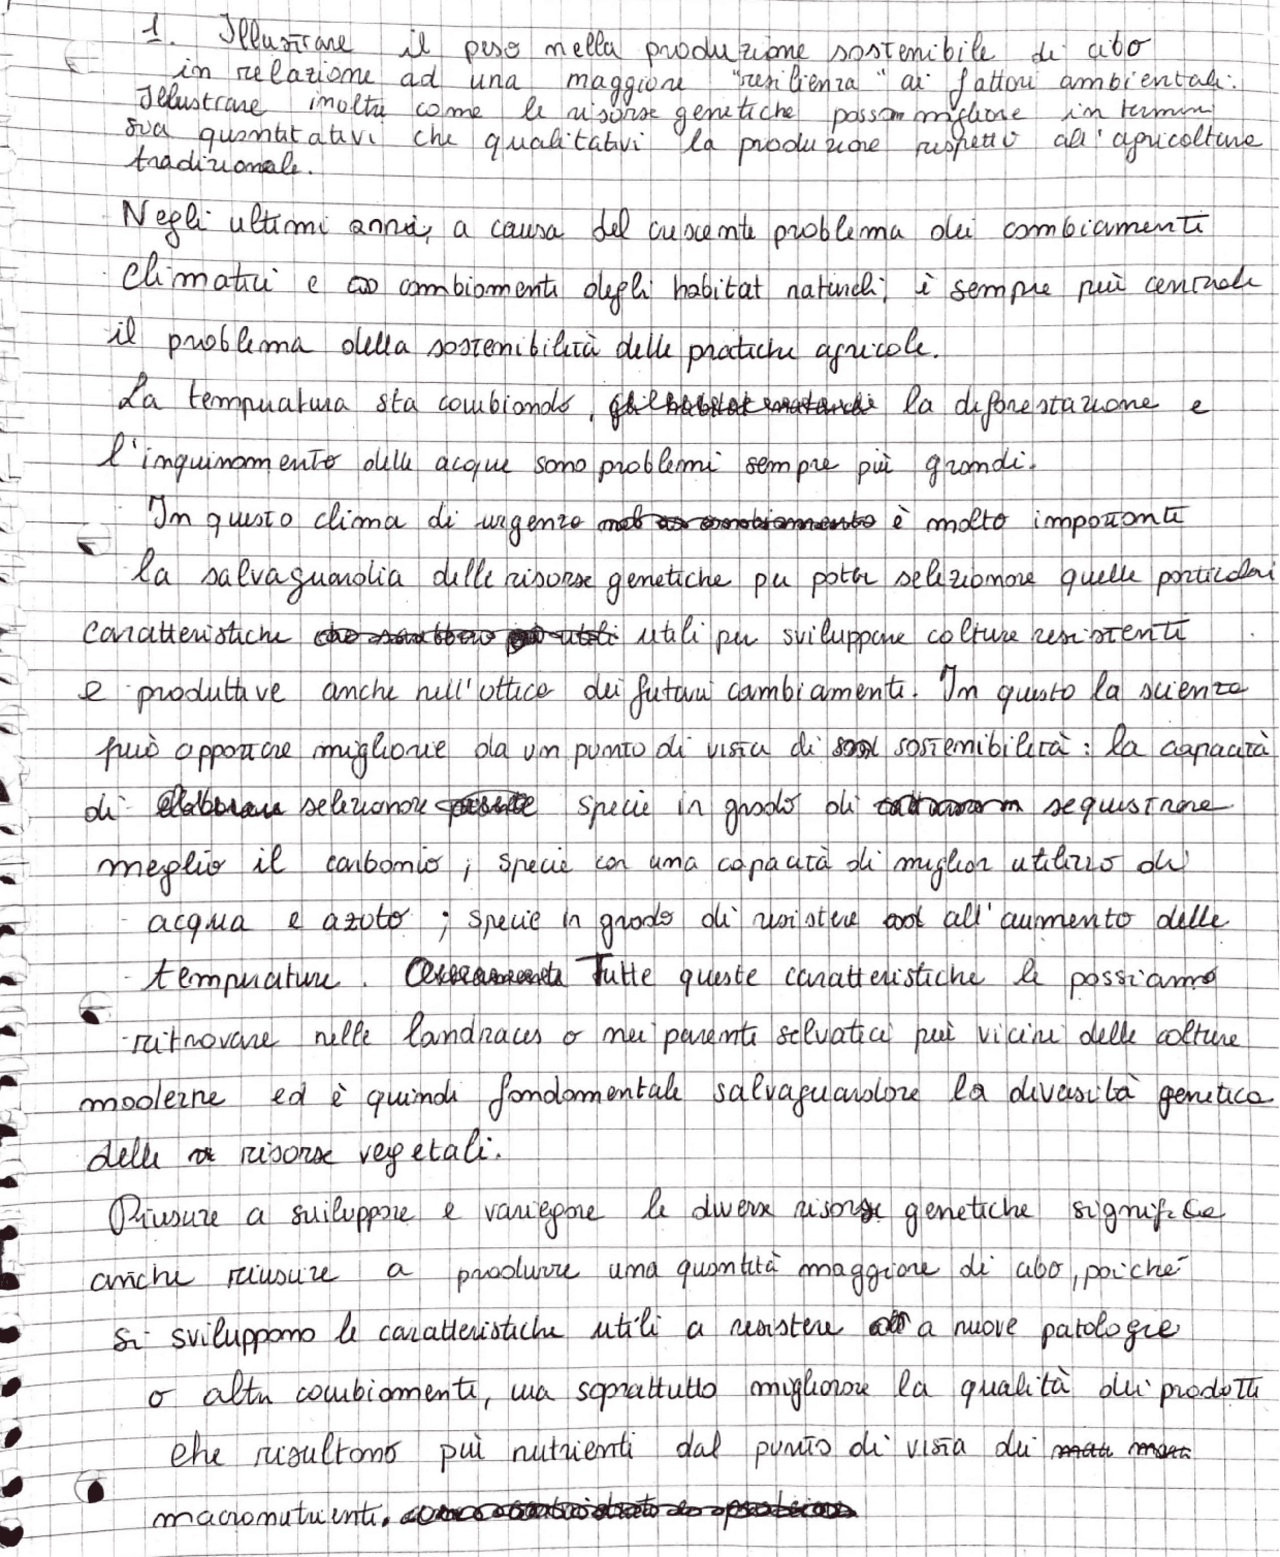 1. Illustrare il peso nella produzione sostenibile di cibo
in relazione ad una maggiore "resilienza" ai fattori ambientali.
Illustrare inoltre come le risorse genetiche possono migliorare in termini
sia quantitativi che qualitativi la produzione rispetto all'agricoltura
tradizionale.
Negli ultimi anni, a causa del crescente problema dei cambiamenti
climatici e cambiamenti degli habitat naturali, è sempre più centrale
il problema della sostenibilità delle pratiche agricole.
La temperatura sta cambiando, la deforestazione e
l'inquinamento delle acque sono problemi sempre più grandi.
In questo clima di urgenza è molto importante
la salvaguardia delle risorse genetiche per poter selezionare quelle particolari
caratteristiche utili per sviluppare colture resistenti
e produttive anche nell'ottica dei futuri cambiamenti. In questo la scienza
può apportare migliorie da un punto di vista di sostenibilità: la capacità
di selezionare specie in grado di sequestrare
meglio il carbonio; specie con una capacità di miglior utilizzo di
acqua e azoto; specie in grado di resistere all'aumento delle
temperature. Tutte queste caratteristiche le possiamo
ritrovare nelle landraces o nei parenti selvatici più vicini delle colture
moderne ed è quindi fondamentale salvaguardare la diversità genetica
delle risorse vegetali.
Riuscire a sviluppare e variegare le diverse risorse genetiche significa
anche riuscire a produrre una quantità maggiore di cibo, poiché
si sviluppano le caratteristiche utili a resistere a nuove patologie
o altri cambiamenti, ma soprattutto migliorare la qualità dei prodotti
che risultano più nutrienti dal punto di vista dei
macronutrienti.